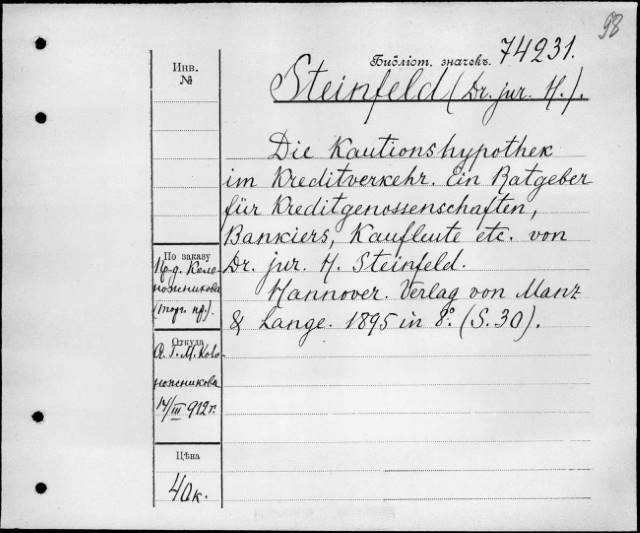 98
Библіот. значекъ. 74231.
Инв.
№
Steinfeld (Dr. jur. H.).
Die Kautionshypothek
im Kreditverkehr. Ein Ratgeber
für Kreditgenossenschaften,
Bankiers, Kaufleute etc. von
Dr. jur. H. Steinfeld.
Hannover. Verlag von Manz
& Lange. 1895 in 8.° (S. 30).
По заказу
(торг. пр.).
Откуда
17/III 912 г.
Цѣна
40 к.